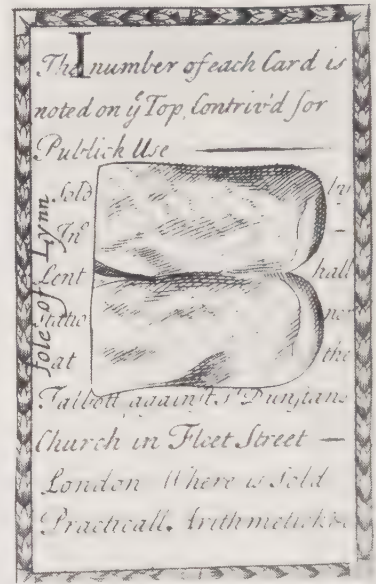 I
The number of each Card is
noted on yͤ Top, Contriv'd for
Publick Use —
Sold by
Jnº -
Lent hall
Statio ner
at the
Talbott, against Sᵗ Dunstans
Church in Fleet Street —
London Where is Sold
Practicall Arithmetick
Jole of Lynn